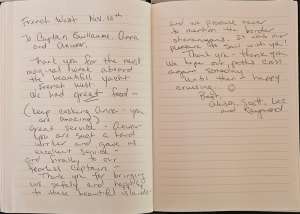 French West Nov. 10th
To Captain Guillaume, Anna
and
Thank you for the most
magical week aboard
the beautiful yacht
French West
We had great food -
(Keep cooking Anna - you
are amazing)
Great service -
you are such a hard
worker and gave us
excellent service -
and finally to our
fearless Captain -
Thank you for bringing
us safely and happily
to these beautiful islands
and we promise never
to mention the border
shenanigans. It was our
pleasure to sail with you!
Thank you - thank you
We hope our paths cross
again someday
Until then - happy
cruising ☺
Best,
Scott,
and Raymond